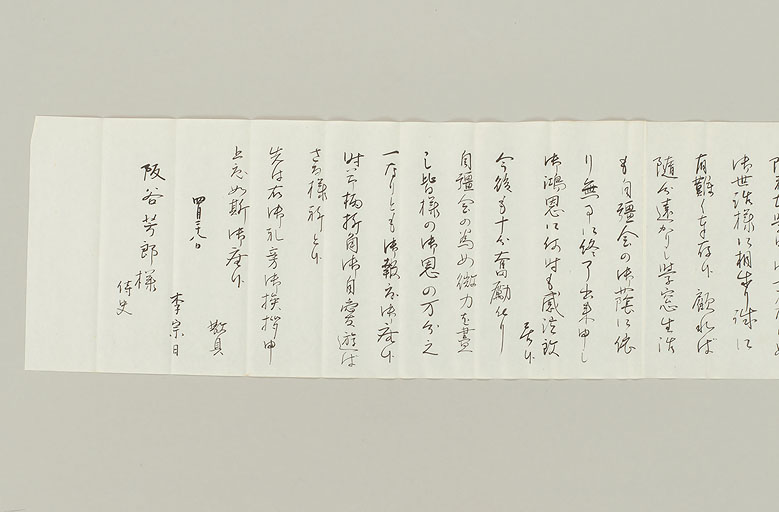 御世話様に相成り誠に
有難く奉存候 顧れば
随分遠かりし学窓生活
も自彊会の御蔭に依
り無事に終了出来申し
御鴻恩に何時も感泣致
居候
今後も十分奮励仕り
自彊会の為め微力を盡
し皆様の御恩の万分之
一なりとも御報応御座候
時下柄折角御自愛遊ば
さる様祈上候
先は右御礼旁御挨拶申
上度如斯御座候
敬具
四月廿八日
李宗日
阪谷芳郎様
侍史